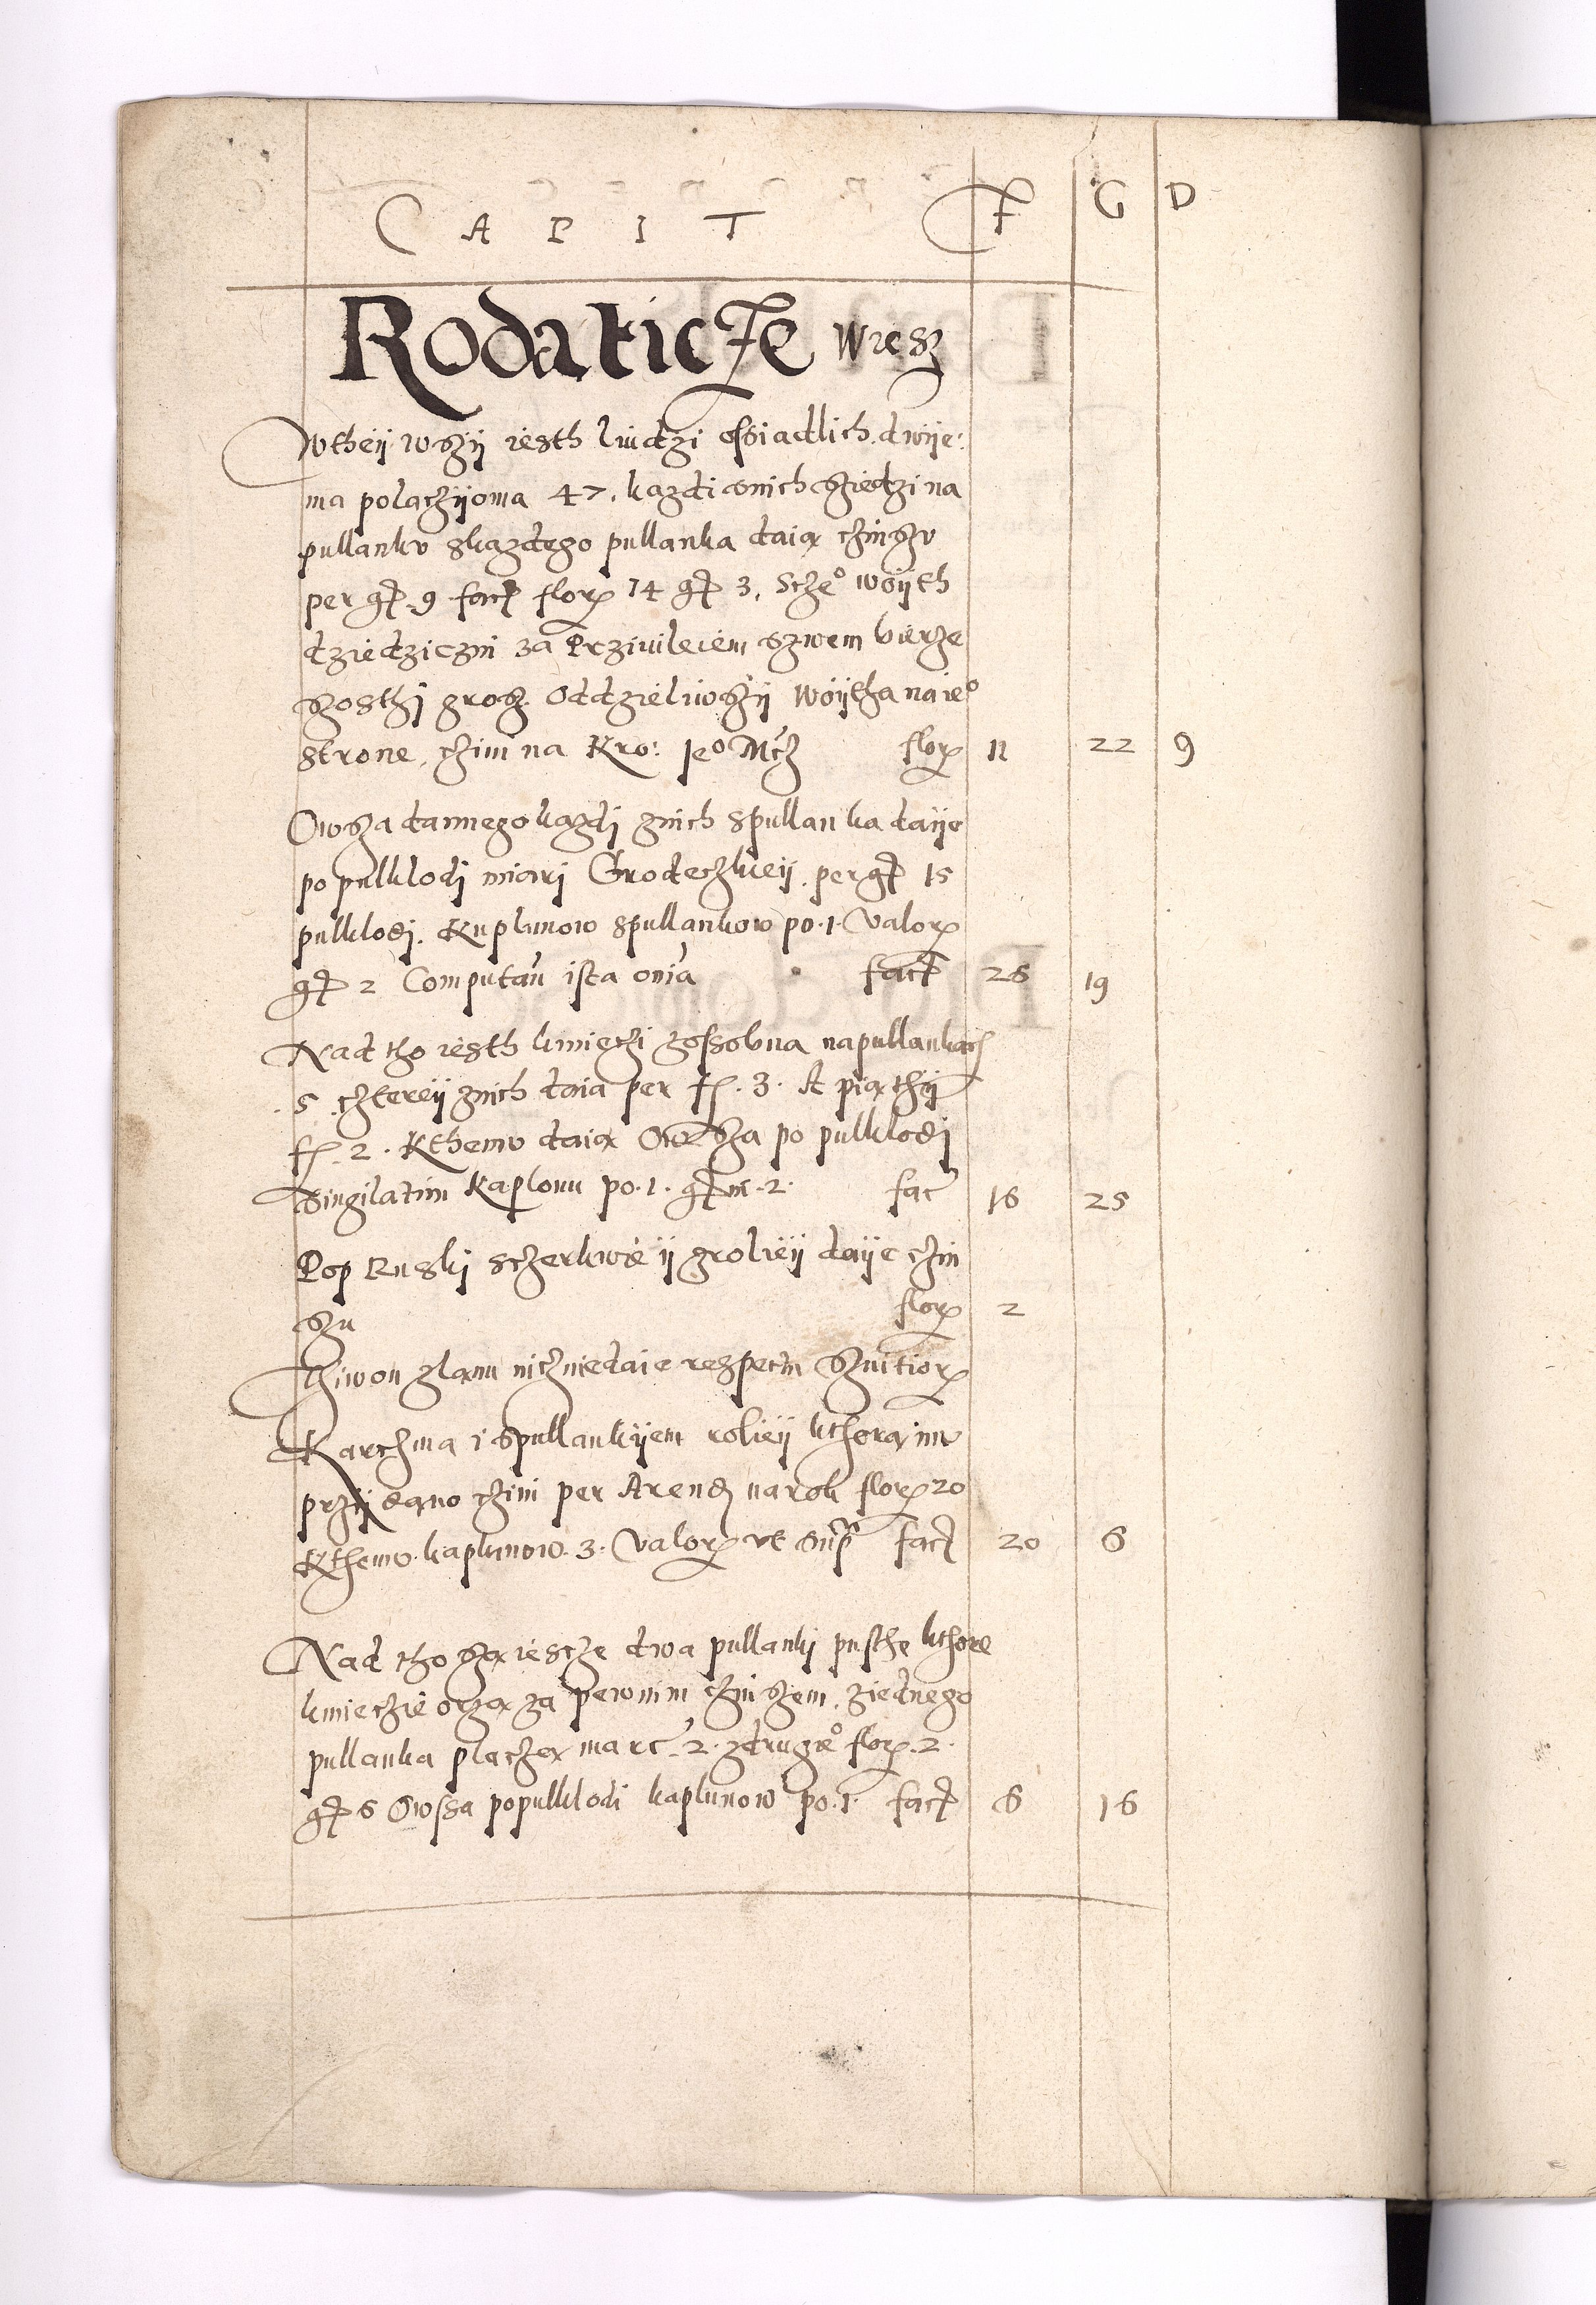 CAPIT F G D
Rodaticze wiesz
Wtheÿ wszÿ iesth liudzi ossiadlich dwÿe:
ma polaczÿoma 47. kazdi snich sziedzi na
pullanku skazdego pullanka daią czinszu
per gr. 9 facit flor 14 gr 3. Scze° woÿth
dziedziczni za Prziuileiem szwem bierze
szosthj grosz. Oddzieliwszÿ Woÿtha na ie°
strone, czini na Kro: Je° Mcz flor 11 22 9
Owsza dannego kazdj znich spullanka daÿe
po pulklodj miarj Grodeczkieÿ. per gr 15
pulklodj. Kaplunow spullankow po .1. valor
gr 2 Computatu ista onia facit 26 19
Nad tho iesth kmieczi zossobna na pullankach
5 czthereÿ znich daia per fl. 3. A piąthÿ
fl. 2. Kthemu daią Owsza po pulklodj
Singilatim Kaplonu po .1. gr m. 2. fac 16 25
Pop Ruskj sczerkwie ÿ zrolieÿ daÿe czin
szu flor 2
Thiwon zlanu nicz niedaie respectu seruitior
Karczma i spullankÿem rolieÿ kthorą iu
przÿdano czini per Arendj na rok flor 20
Kthemu kaplunow. 3. valor vt supra facit 20 6
Nad tho są iescze dwa pullankj pusthe kthore
kmieczie orzą za pewnim czinszem. ziednego
pullanka placzą marc. 2. zdrugie° flor. 2.
gr 6 Owssa po pulklodi kaplunow po .1. facit 6 16